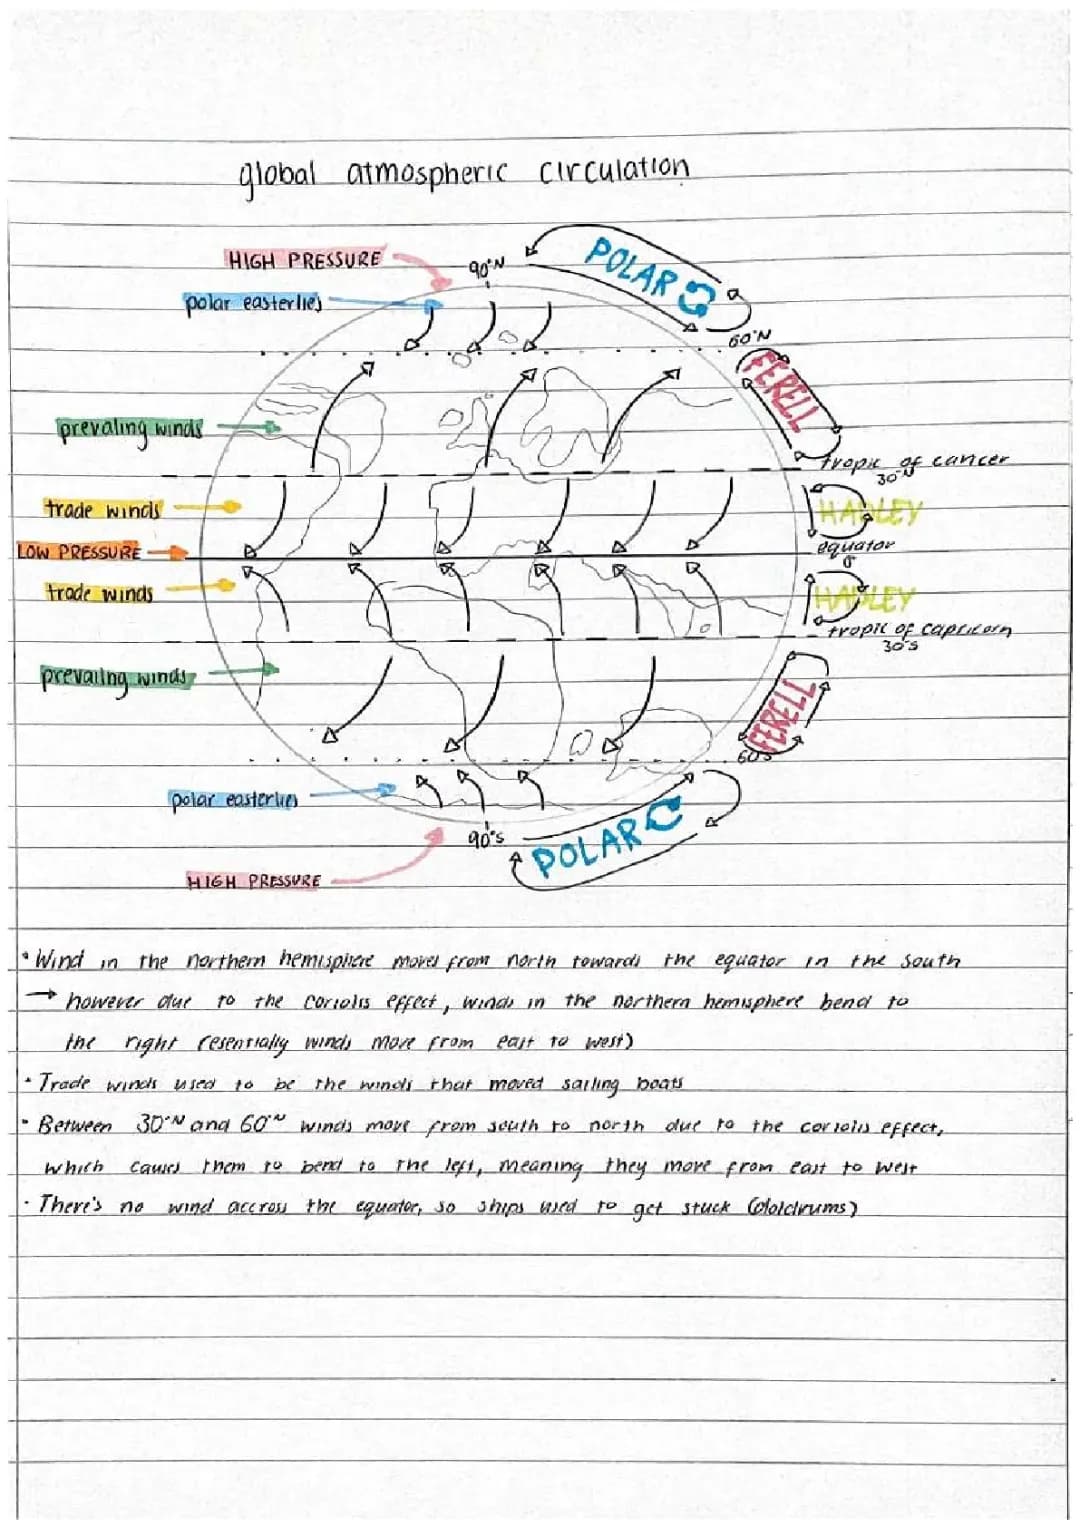 global atmospheric circulation
HIGH PRESSURE
90°N
POLAR
polar easterlies
60°N
FERELL
prevaling winds
tropic of cancer
30°N
trade winds
HADLEY
LOW PRESSURE
equator
0°
trade winds
HADLEY
tropic of capricorn
30°S
prevailng winds
FERELL
60°S
polar easterlies
90°S
POLAR
HIGH PRESSURE
• Wind in the northern hemisphere moves from north towards the equator in the south
→ however due to the coriolis effect, winds in the northern hemisphere bend to
the right (esentially winds move from east to west)
• Trade winds used to be the winds that moved sailing boats
• Between 30°N and 60°N winds move from south to north due to the coriolis effect,
which causes them to bend to the left, meaning they move from east to west
• There's no wind accross the equator, so ships used to get stuck (doldrums)